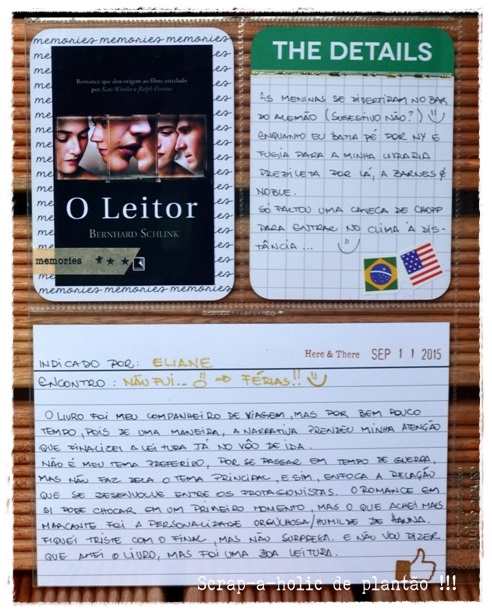 memories memories memories memories
Romance que deu origem ao filme estrelado
por Kate Winslet e Ralph Fiennes
O Leitor
BERNHARD SCHLINK
memories
memories memories memories memories
THE DETAILS
AS MENINAS SE DIVERTIRAM NO BAR
DO ALEMÃO (SUGESTIVO NÃO?)
ENQUANTO EU BATIA PÉ POR NY E
FUGIA PARA A MINHA LIVRARIA
PREDILETA POR LÁ, A BARNES &
NOBLE.
SÓ FALTOU UMA CANECA DE CHOPP
PARA ENTRAR NO CLIMA À DIS-
TÂNCIA...
Here & There SEP 11 2015
INDICADO POR: ELIANE
ENCONTRO: NÃO FUI... !! → FÉRIAS!!
O LIVRO FOI MEU COMPANHEIRO DE VIAGEM, MAS POR BEM POUCO
TEMPO, POIS DE UMA MANEIRA, A NARRATIVA PRENDEU MINHA ATENÇÃO
QUE FINALIZEI A LEITURA JÁ NO VÔO DE IDA.
NÃO É MEU TEMA PREFERIDO, POR SE PASSAR EM TEMPO DE GUERRA,
MAS NÃO FAZ DELA O TEMA PRINCIPAL, E SIM, ENFOCA A RELAÇÃO
QUE SE DESENVOLVE ENTRE OS PROTAGONISTAS. O ROMANCE EM
SI PODE CHOCAR EM UM PRIMEIRO MOMENTO, MAS O QUE ACHEI MAIS
MARCANTE FOI A PERSONALIDADE ORGULHOSA/HUMILDE DE HANNA.
FIQUEI TRISTE COM O FINAL, MAS NÃO SURPRESA. E NÃO VOU DIZER
QUE AMEI O LIVRO, MAS FOI UMA BOA LEITURA.
Scrap-a-holic de plantão !!!